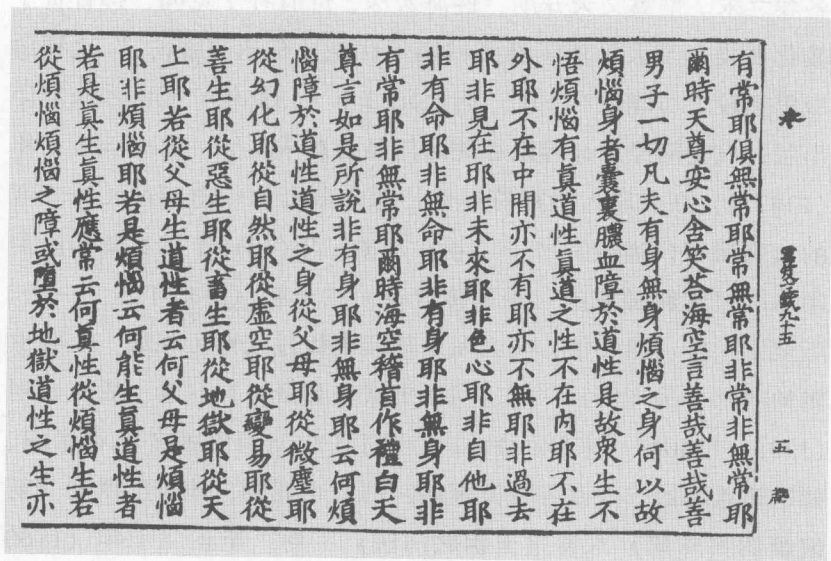 有常耶俱無常耶常無常耶非常非無常耶
爾時天尊安心含笑荅海空言善哉善哉善
男子一切凡夫有身無身煩惱之身何以故
煩惱身者囊裹膿血障於道性是故衆生不
悟煩惱有真道性真道之性不在内耶不在
外耶不在中間亦不有耶亦不無耶非過去
耶非見在耶非未來耶非色心耶非自他耶
非有命耶非無命耶非有身耶非無身耶非
有常耶非無常耶爾時海空稽首作禮白天
尊言如是所說非有身耶非無身耶云何煩
惱障於道性道性之身從父母耶從微塵耶
從幻化耶從自然耶從虛空耶從變易耶從
善生耶從惡生耶從畜生耶從地獄耶從天
上耶若從父母生道性者云何父母是煩惱
耶非煩惱耶若是煩惱云何能生真道性者
若是真生真性應常云何真性從煩惱生若
從煩惱煩惱之障或墮於地獄道性之生亦
九十五
五